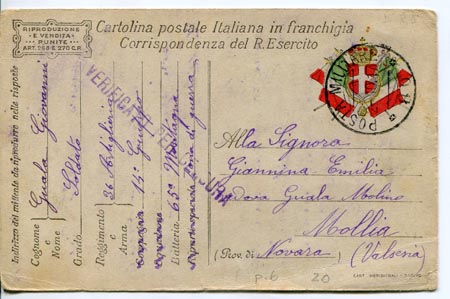 RIPRODUZIONE
E VENDITA
PUNITE
ART. 268 E 270 C.P.
Cartolina postale Italiana in franchigia
Corrispondenza del R. Esercito
POSTA MILITARE
VERIFICATO PER CENSURA
Indirizzo del mittente da riprodurre nelle risposte
Cognome e Nome Guala Giovanni
Grado Soldato
Reggimento e Arma 2a Artiglieria
Compagnia 14° Gruppo
Batteria 65a Montagna
zona di guerra
Alla Signora
Giannina Emilia
vedova Guala Molino
Mollia
(Prov. di Novara (Valsesia)
p. 6 20